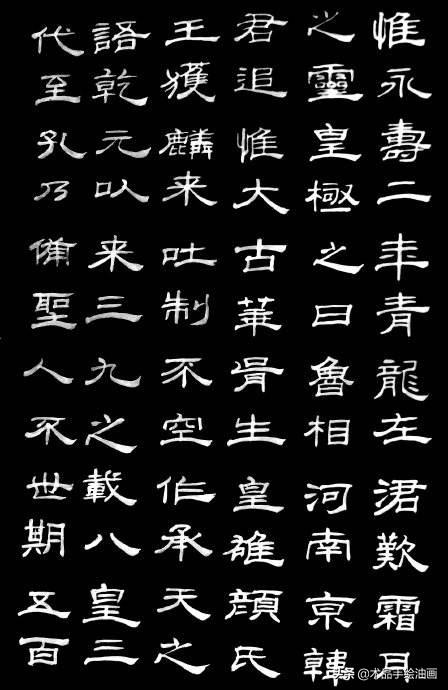 惟永壽二年青龍左涒歎霜月
之靈皇極之日魯相河南京韓
君追惟大古華胥生皇雄顏氏
王獲麟来吐制不空作承天之
語乾元以来三九之載八皇三
代至孔乃備聖人不世期五百
头条 @术品手绘油画